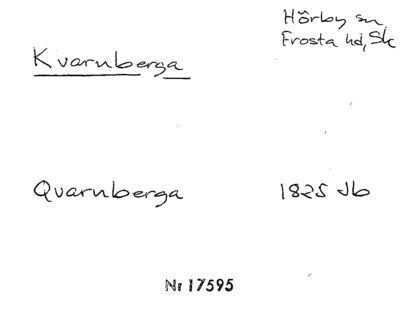 Hörby sn
Frosta hd, Sk
Kvarnberga
Qvarnberga 1825 Jb
Nr 17595